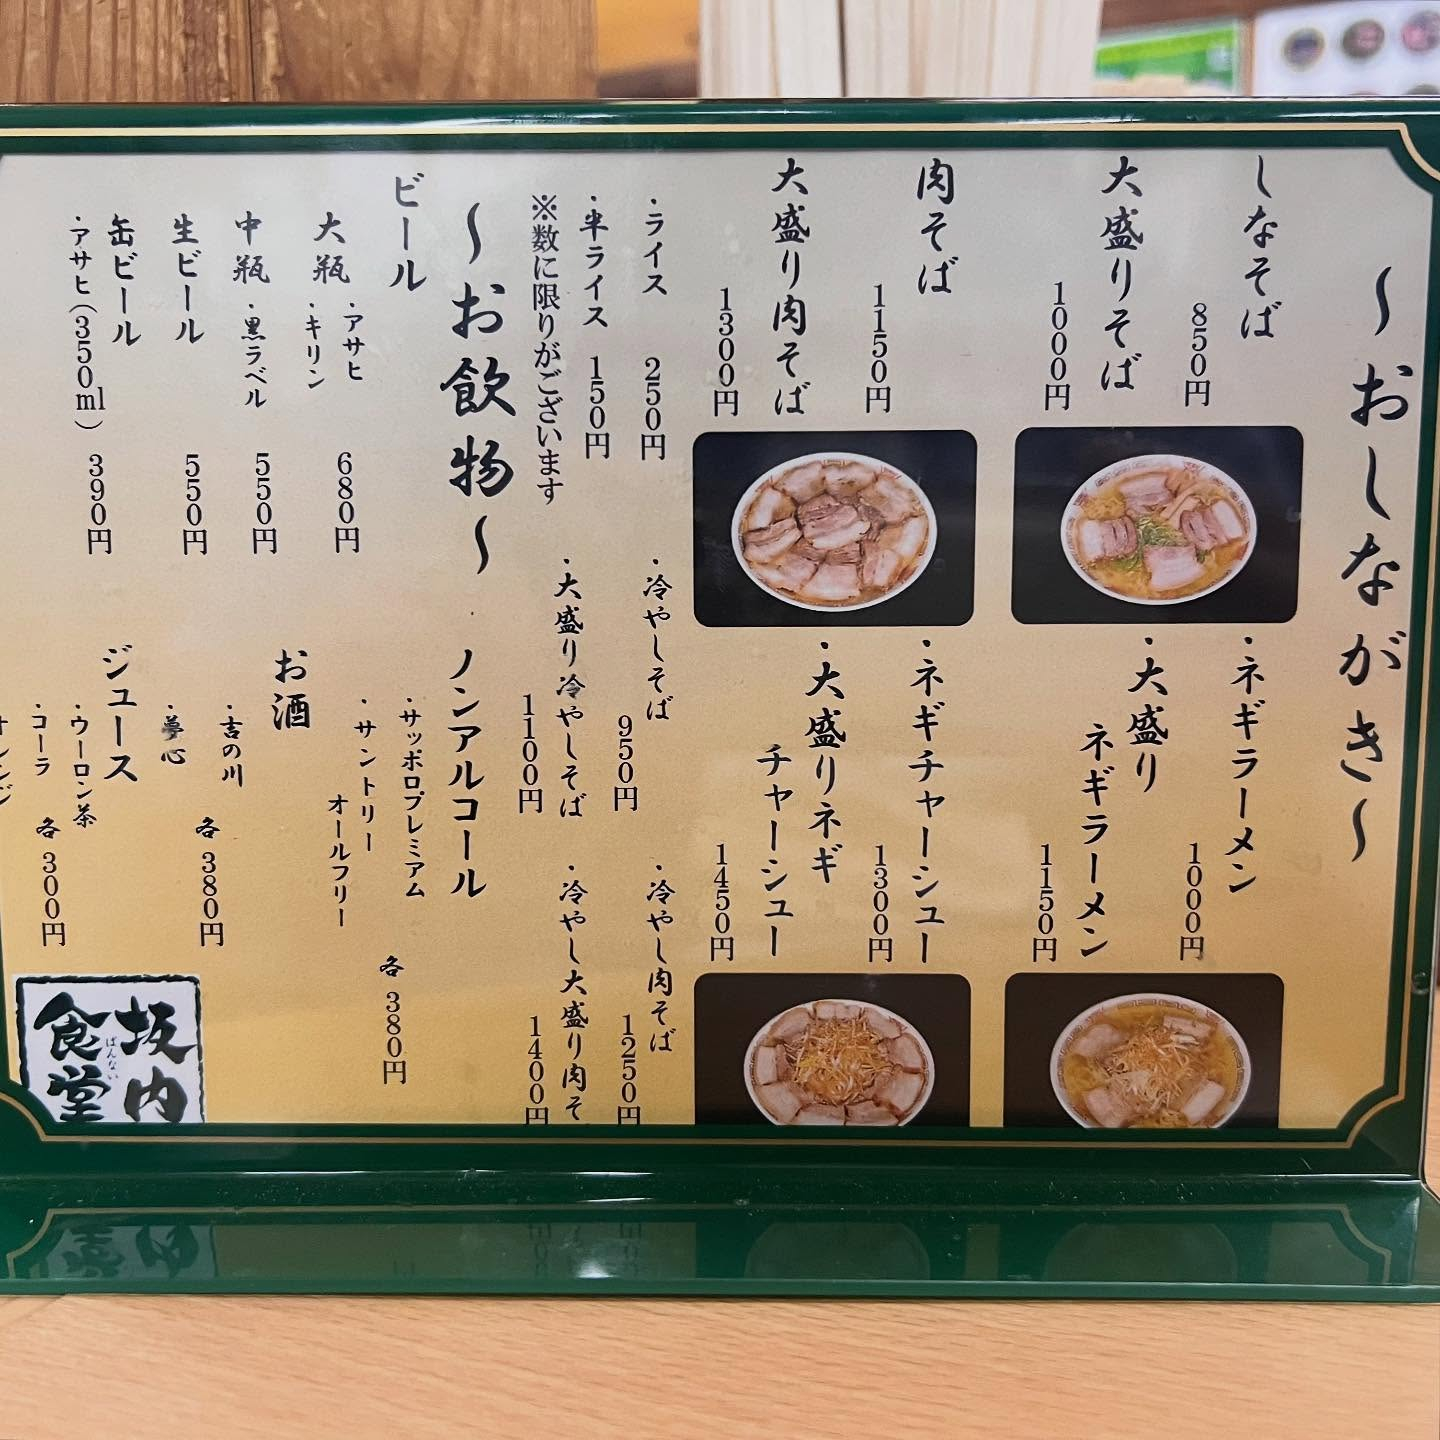 ～おしながき～
しなそば
850円
大盛りそば
1000円
・ネギラーメン
1000円
・大盛り
ネギラーメン
1150円
肉そば
1150円
大盛り肉そば
1300円
・ネギチャーシュー
1300円
・大盛りネギ
チャーシュー
1450円
・ライス 250円
・半ライス 150円
※数に限りがございます
・冷やしそば
950円
・大盛り冷やしそば
1100円
・冷やし肉そば
1250円
・冷やし大盛り肉そ
1400円
～お飲物～
ビール
大瓶
・アサヒ
・キリン
680円
中瓶
・黒ラベル
550円
生ビール
550円
缶ビール
・アサヒ（350ml）
390円
ノンアルコール
・サッポロプレミアム
・サントリー
オールフリー
各380円
お酒
・吉の川
・夢心
各380円
ジュース
・ウーロン茶
・コーラ
オレンジ
各300円
坂内
ばんない
食堂